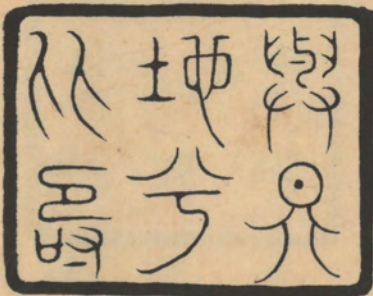 與天
地兮
比壽